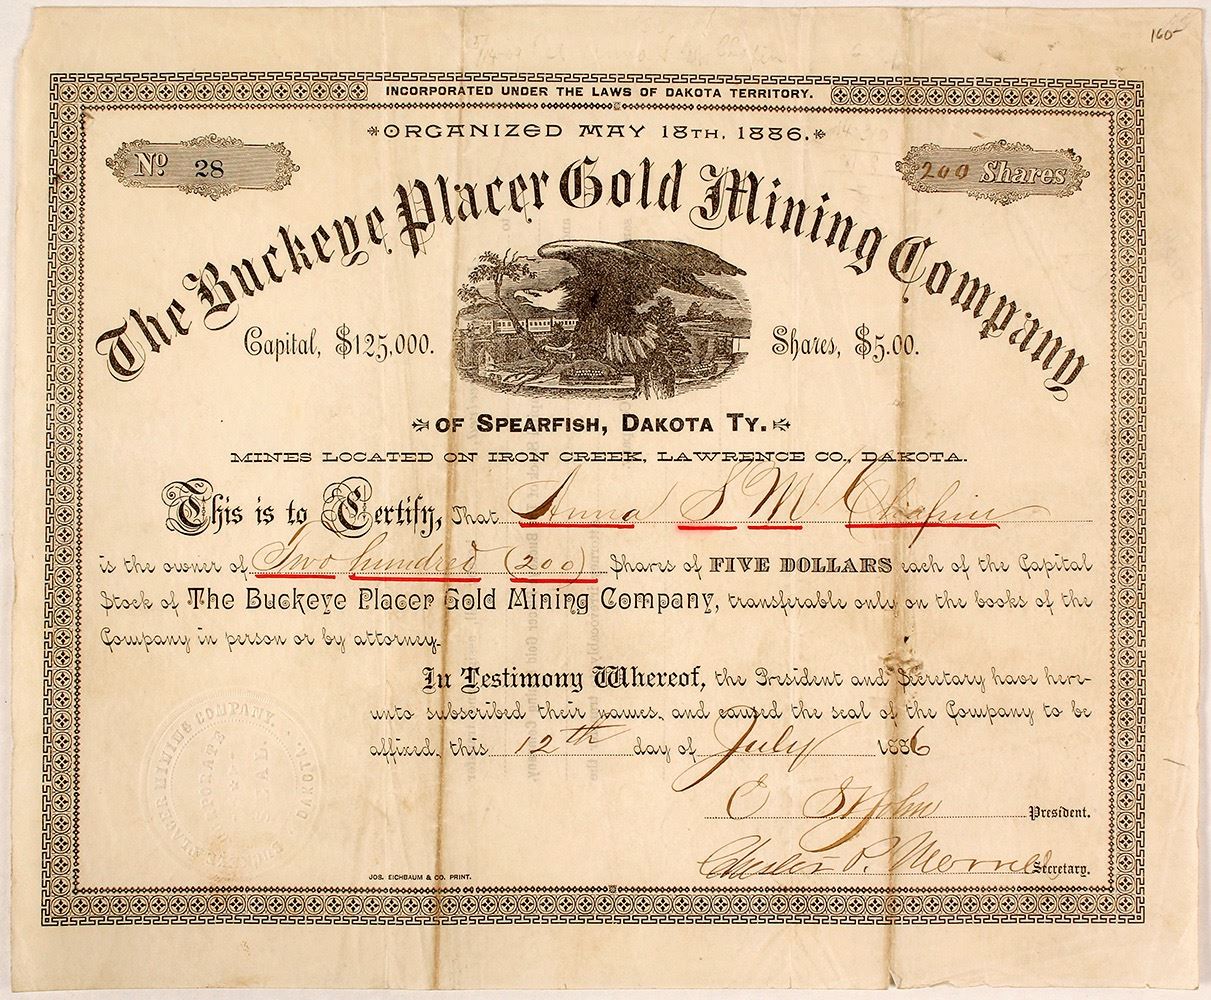 160-
INCORPORATED UNDER THE LAWS OF DAKOTA TERRITORY.
ORGANIZED MAY 18TH, 1886.
No 28
200 Shares
The Buckeye Placer Gold Mining Company
Capital, $125,000.
Shares, $5.00.
OF SPEARFISH, DAKOTA TY.
MINES LOCATED ON IRON CREEK, LAWRENCE CO., DAKOTA.
This is to Certify, That Anna S M Chapin
is the owner of Two hundred (200) Shares of FIVE DOLLARS each of the Capital
Stock of The Buckeye Placer Gold Mining Company, transferable only on the books of the
Company in person or by attorney.
In Testimony Whereof, the President and Secretary have here-
unto subscribed their names, and caused the seal of the Company to be
affixed, this 12th day of July 1886
E St John President.
Chester P. Merrill Secretary.
BUCKEYE PLACER MINING COMPANY. DAKOTA
CORPORATE SEAL
JOS. EICHBAUM & CO. PRINT.